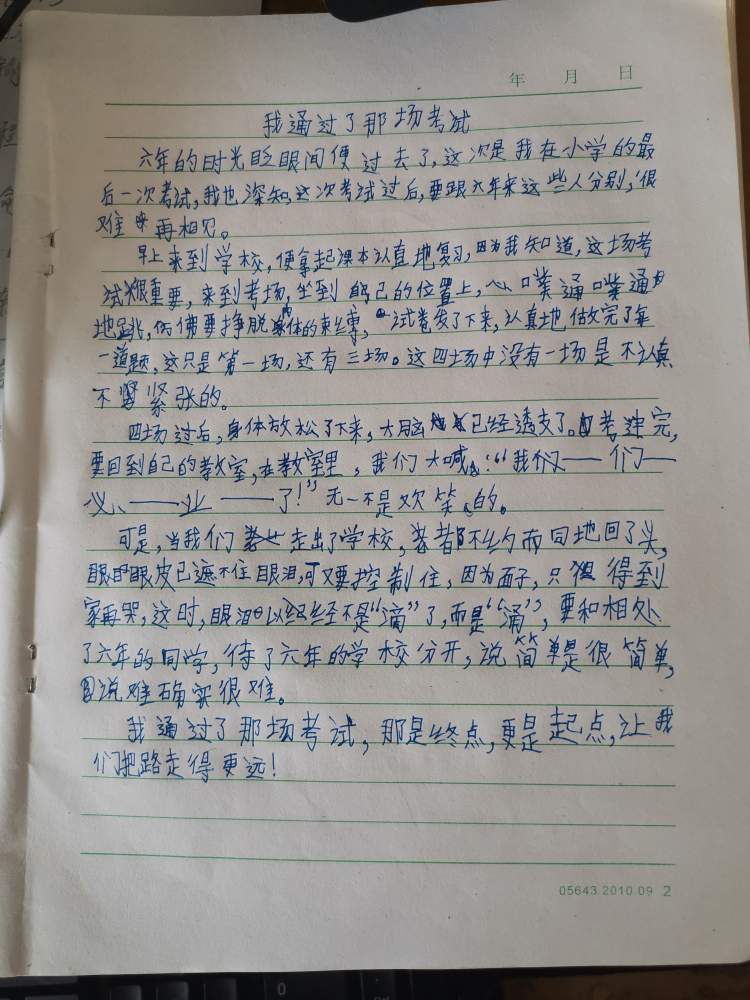 年 月 日
我通过了那场考试
六年的时光眨眼间便过去了,这次是我在小学的最
后一次考试,我也深知,这次考试过后,要跟六年来这些人分别,很
难再相见。
早上来到学校,便拿起课本认真地复习,因为我知道,这场考
试很重要,来到考场,坐到自己的位置上,心噗通噗通
地跳,仿佛要挣脱身体的束缚,试卷发了下来,认真地做完了每
一道题,这只是第一场,还有三场。这四场中没有一场是不认真
不紧张的。
四场过后,身体放松了下来,大脑已经透支了。考完,
要回到自己的教室,在教室里,我们大喊:“我们——
——业——了!”无一不是欢笑的。
可是,当我们走出了学校,都不约而同地回了头,
眼皮已遮不住眼泪,可又要控制住,因为面子,只得到
家再哭,这时,眼泪以经不是“滴”了,而是“涌”,要和相处
了六年的同学,待了六年的学校分开,说简单是很简单,
说难确实很难。
我通过了那场考试,那是终点,更是起点,让我
们把路走得更远!
05643.2010.09 2